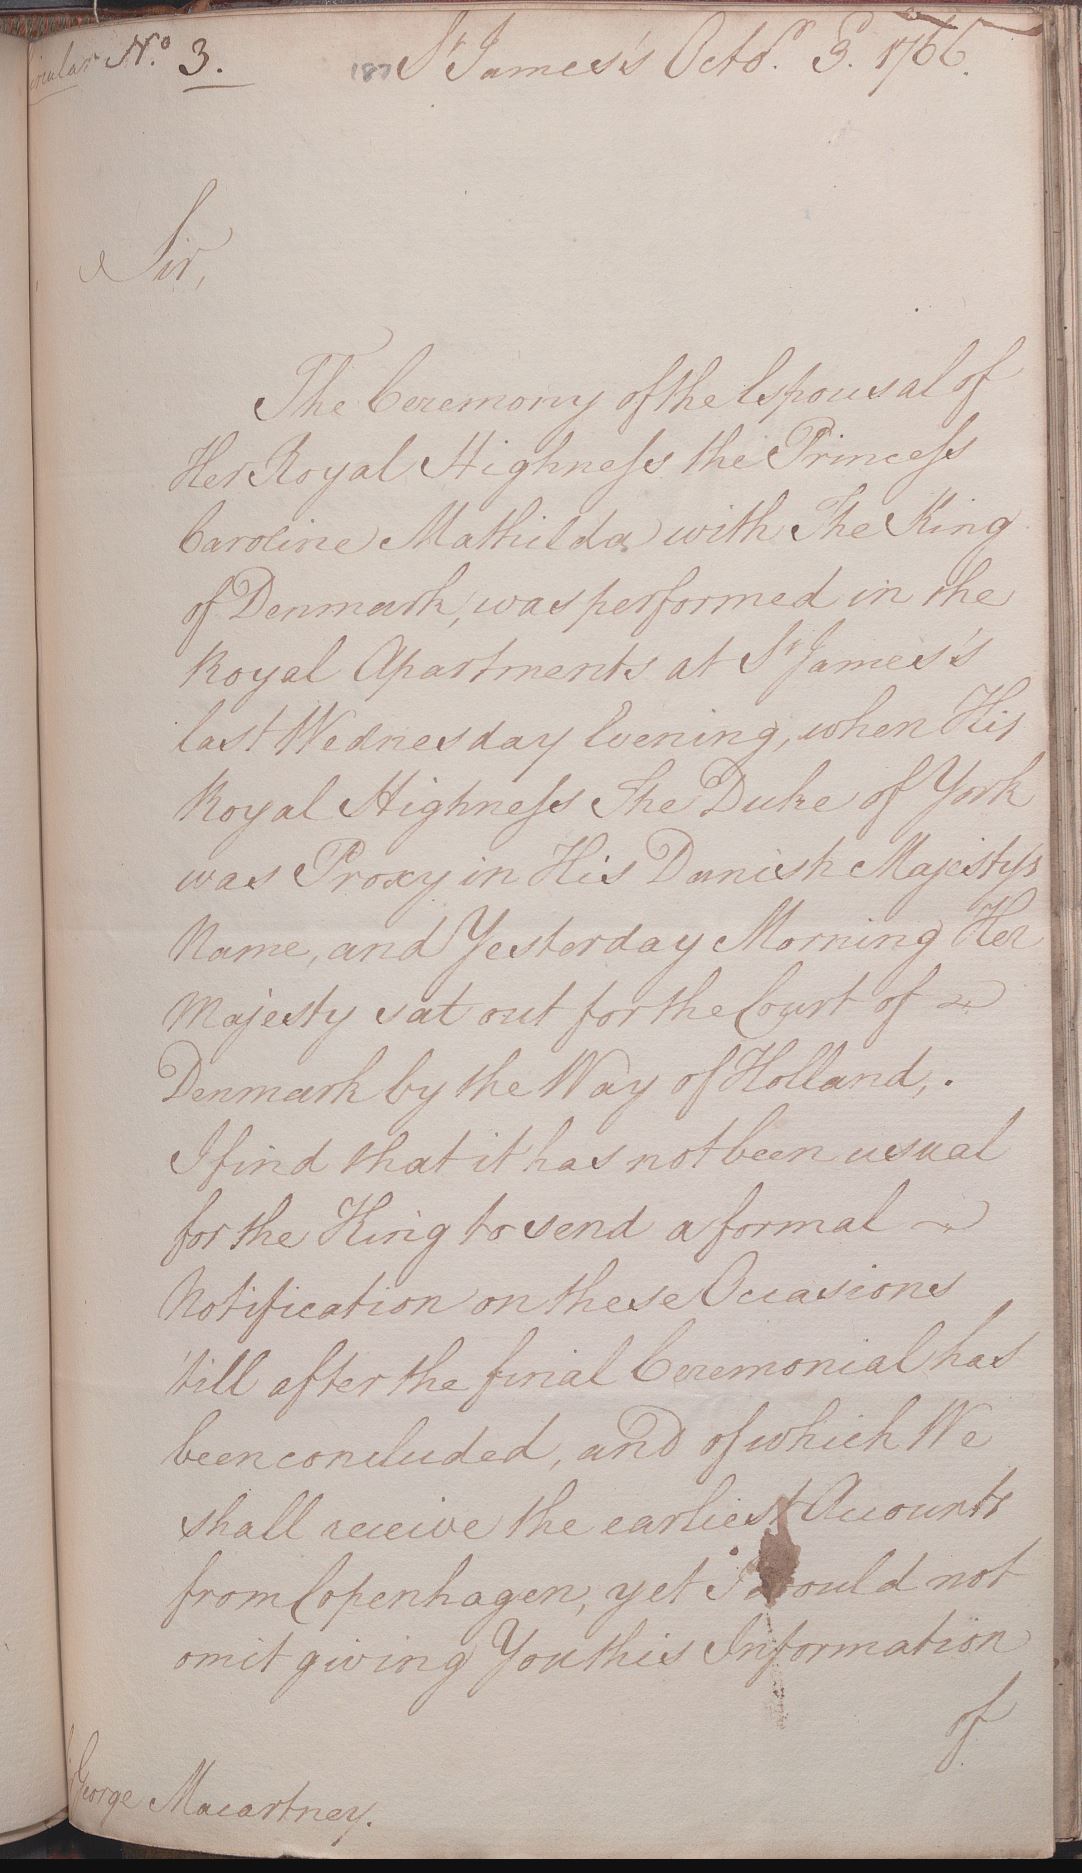 Circular N.º 3. 187 S.t James's Octo.r 3. 1766.
Sir,
The Ceremony of the Espousal of
Her Royal Highness the Princess
Caroline Mathilda with The King
of Denmark, was performed in the
Royal Apartments at S.t James's
last Wednesday Evening, when His
Royal Highness The Duke of York
was Proxy in His Danish Majesty's
Name, and Yesterday Morning Her
Majesty sat out for the Court of
Denmark by the Way of Holland,.
I find that it has not been usual
for the King to send a formal
Notification on these Occasions
'till after the final Ceremonial has
been concluded, and of which We
shall receive the earliest Accounts
from Copenhagen, yet I would not
omit giving You this Information
of
George Macartney.